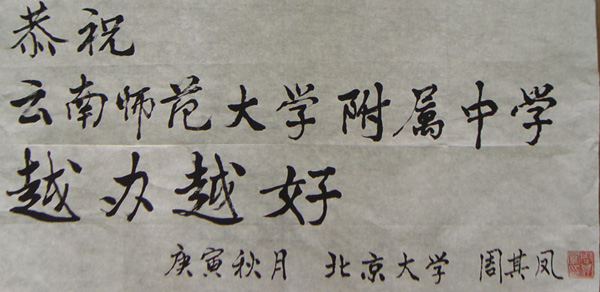 恭祝
云南师范大学附属中学
越办越好
庚寅秋月 北京大学 周其凤